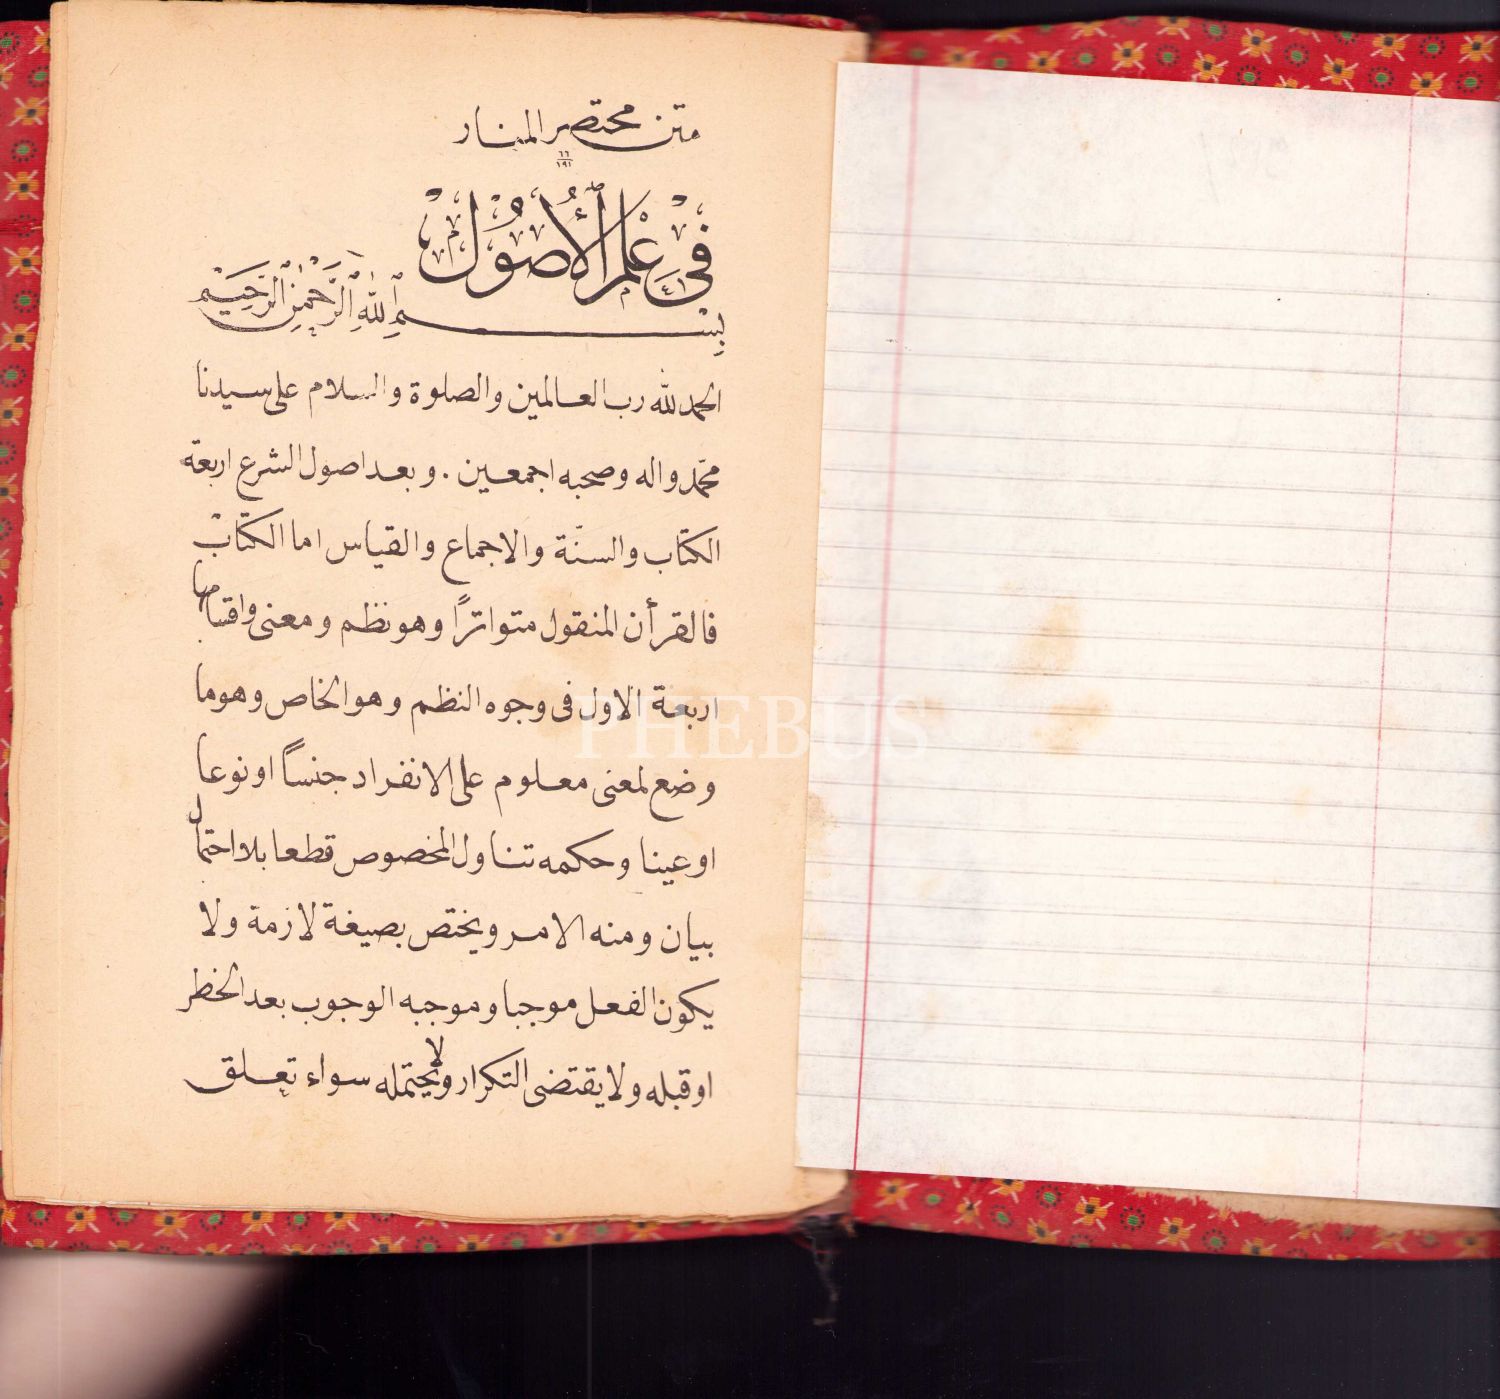 متن مختصر المنار
٦٦
١٩١
فِي عِلْمِ الْأُصُولِ
بِسْمِ اللهِ الرَّحْمٰنِ الرَّحِيمِ
الحمد لله رب العالمين والصلوة والسلام على سيدنا
محمد واله وصحبه اجمعين . وبعد اصول الشرع اربعة
الكتاب والسنة والاجماع والقياس اما الكتاب
فالقرأن المنقول متواترًا وهو نظم ومعنى واقسامها
اربعة الاول فى وجوه النظم وهو الخاص وهو ما
وضع لمعنى معلوم على الانفراد جنساً او نوعا
او عينا وحكمه تناول المخصوص قطعا بلا احتمال
بيان ومنه الامر ويختص بصيغة لازمة ولا
يكون الفعل موجبا وموجبه الوجوب بعد الخظر
او قبله ولا يقتضى التكرار ولا يحتمله سواء تعلق
PHEBUS